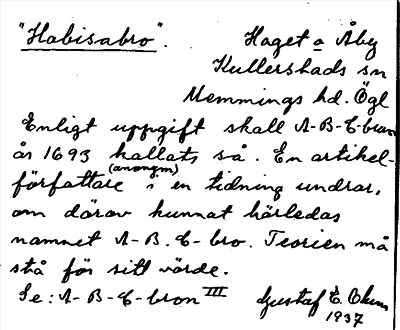 "Habisabro".
Haget o Åby
Kullerstads sn
Memmings hd. Ögl
Enligt uppgift skall A-B-C-bron
år 1693 kallats så. En artikel-
författare (anonym) i en tidning undrar,
om därav kunnat härledas
namnet A-B.C-bro. Teorien må
stå för sitt värde.
Se: A-B-C-bron III
Gustaf E.
1937